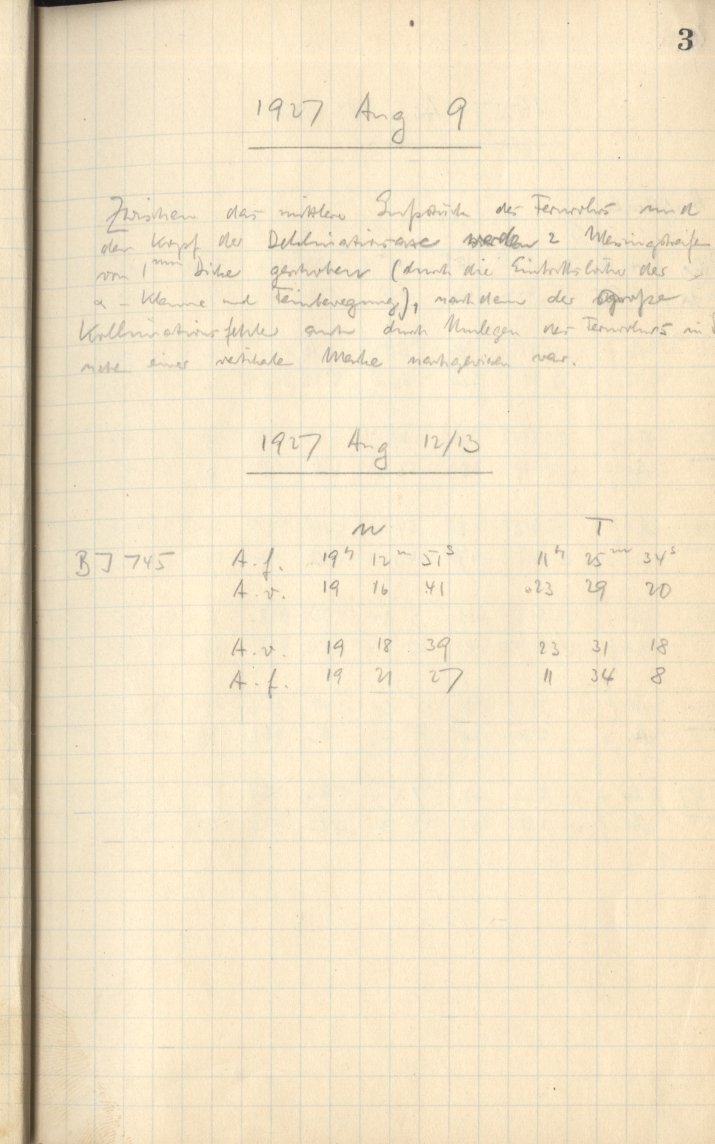 3
1927 Aug 9
Zwischen das mittlere Gußstück des Fernrohrs und
den Kopf der Deklinationsaxe werden 2 Messingstreifen
von 1mm Dicke geschoben (durch die Eintrittslöcher der
α - Klemme und Feinbewegung), nachdem der große
Kollimationsfehler auch durch Umlegen des Fernrohrs in
einer vertikale Marke nachgewiesen war.
1927 Aug 12/13
W T
BJ 745 A.f. 19h 12m 51s 11h 25m 34s
A.v. 19 16 41 23 29 20
A.v. 19 18 39 23 31 18
A.f. 19 21 27 11 34 8